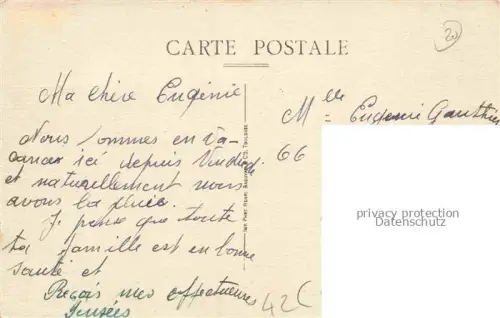 CARTE POSTALE
Ma chère Eugénie
Nous sommes en va-
cances ici depuis Vendredi
et naturellement nous
avons la pluie.
Je pense que toute
ta famille est en bonne
santé et
Reçois mes affectueuses
Pensées
Mlle Eugénie Gauthier
66
privacy protection
Datenschutz
42C
20